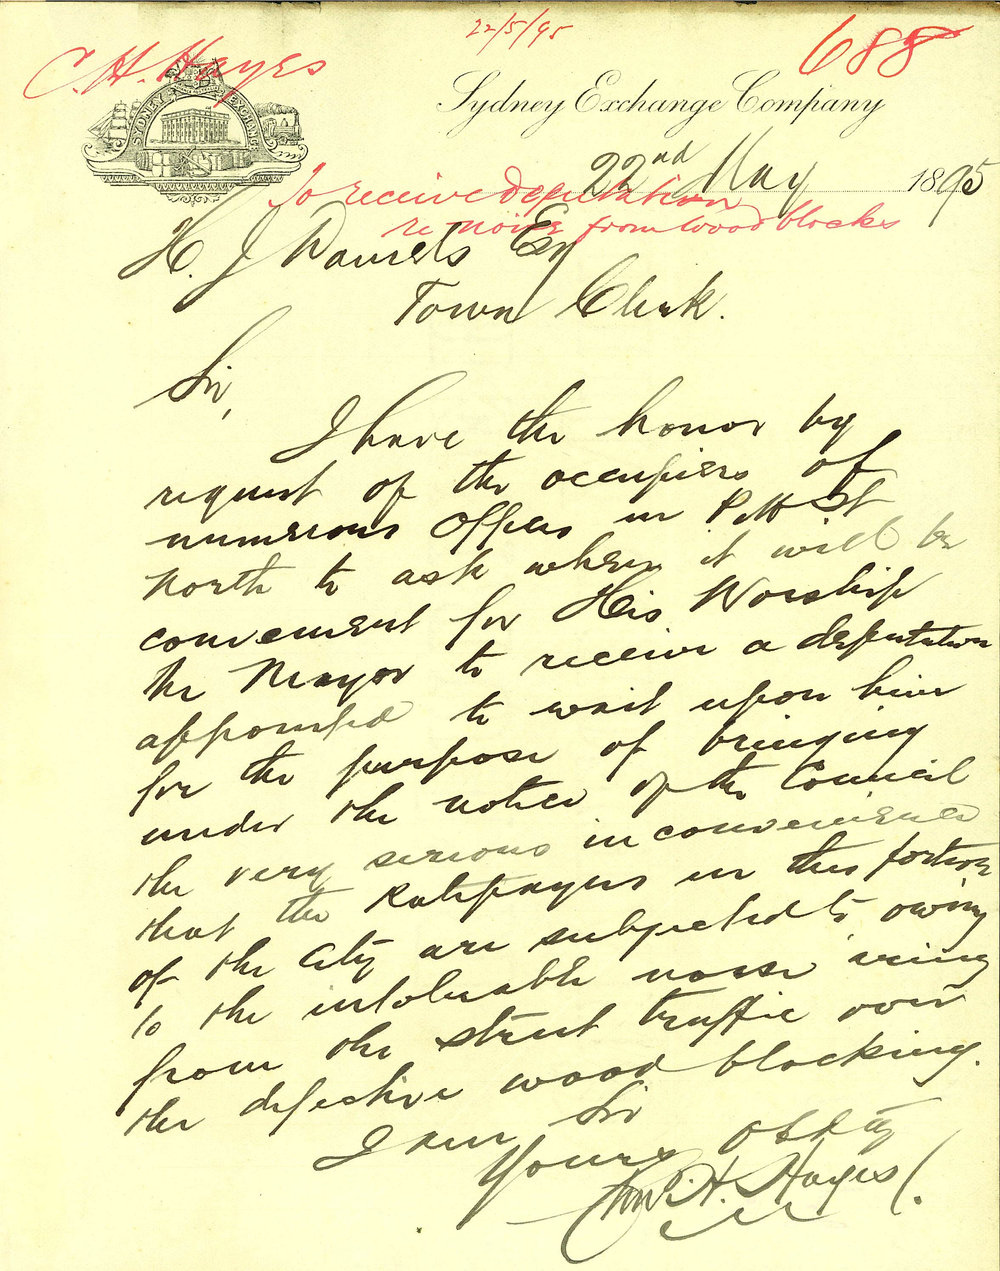 22/5/95
C. H. Hayes
688
SYDNEY EXCHANGE
Sydney Exchange Company
22nd May 1895
To receive deputation
re noise from wood blocks
H. J Daniels Esq
Town Clerk.
Sir,
I have the honor by
request of the occupiers of
numerous Offices in Pitt St
North to ask when it will be
convenient for His Worship
the Mayor to receive a deputation
appointed to wait upon him
for the purpose of bringing
under the notice of the Council
the very serious inconvenience
that the Ratepayers in this portion
of the City are subjected to owing
to the intolerable noise arising
from the street traffic over
the defective wood blocking.
I am Sir
Yours Obdtly
H. Hayes